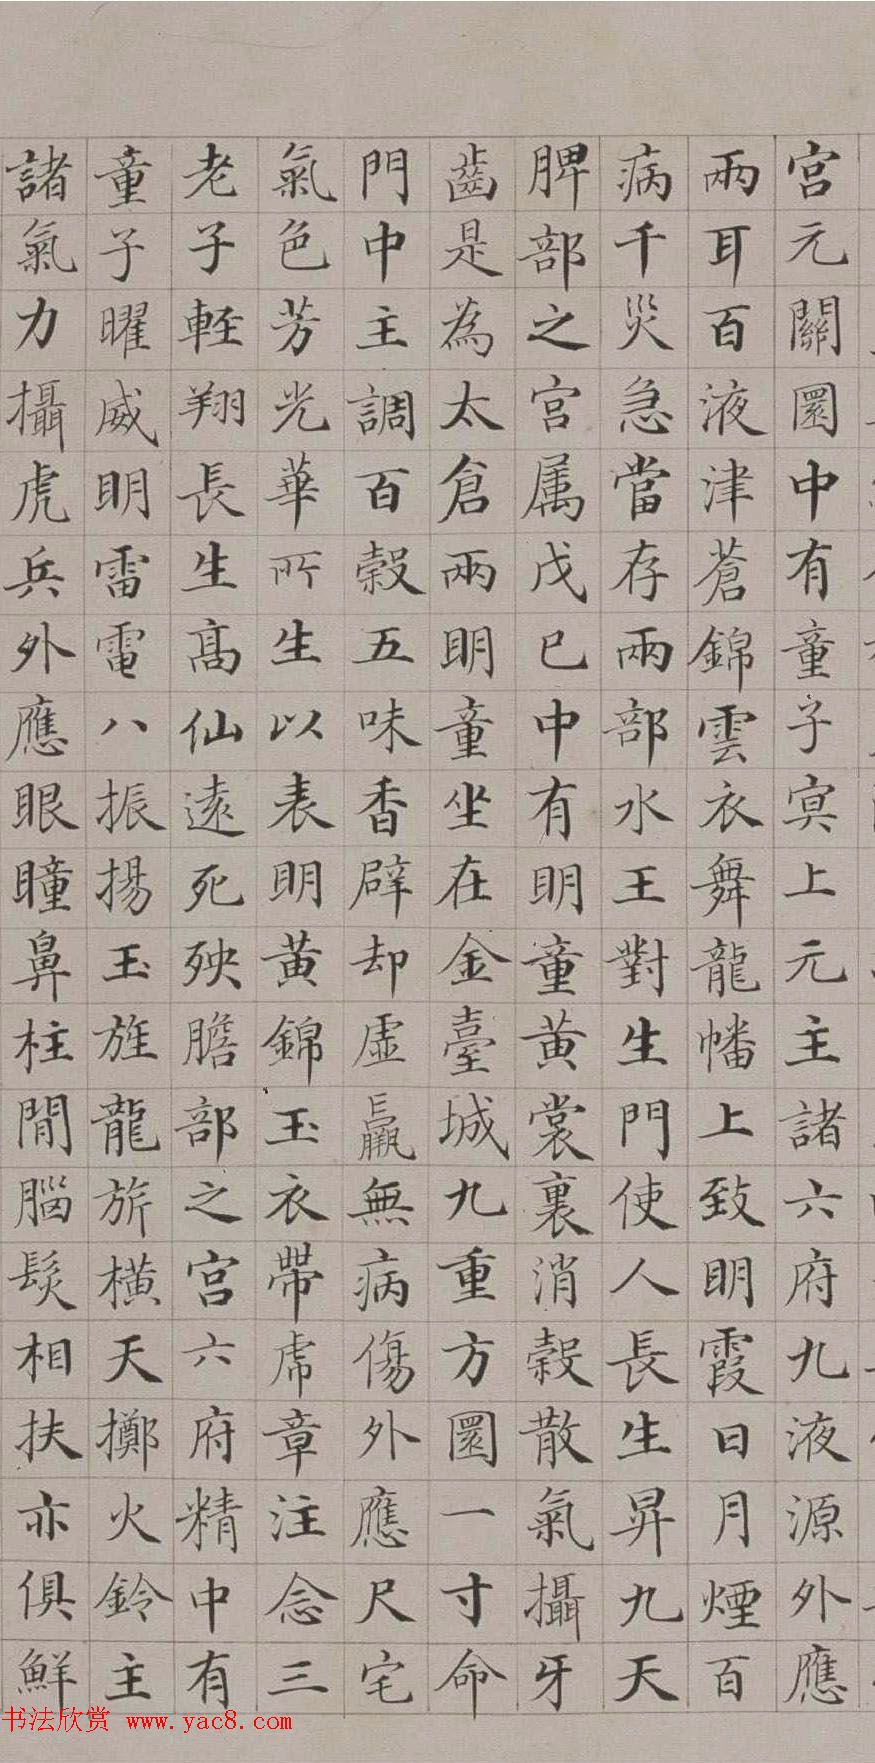 宮元關圜中有童子冥上元主諸六府九液源外應
兩耳百液津蒼錦雲衣舞龍幡上致明霞日月煙百
病千災急當存兩部水王對生門使人長生昇九天
脾部之宮属戊己中有明童黃裳裏消穀散氣攝牙
齒是為太倉兩明童坐在金臺城九重方圜一寸命
門中主調百穀五味香辟却虛羸無病傷外應尺宅
氣色芳光華所生以表明黃錦玉衣帶虎章注念三
老子輕翔長生高仙遠死殃膽部之宮六府精中有
童子曜威明雷電八振揚玉旌龍旂橫天擲火鈴主
諸氣力攝虎兵外應眼瞳鼻柱間腦髮相扶亦俱鮮
书法欣赏 www.yac8.com